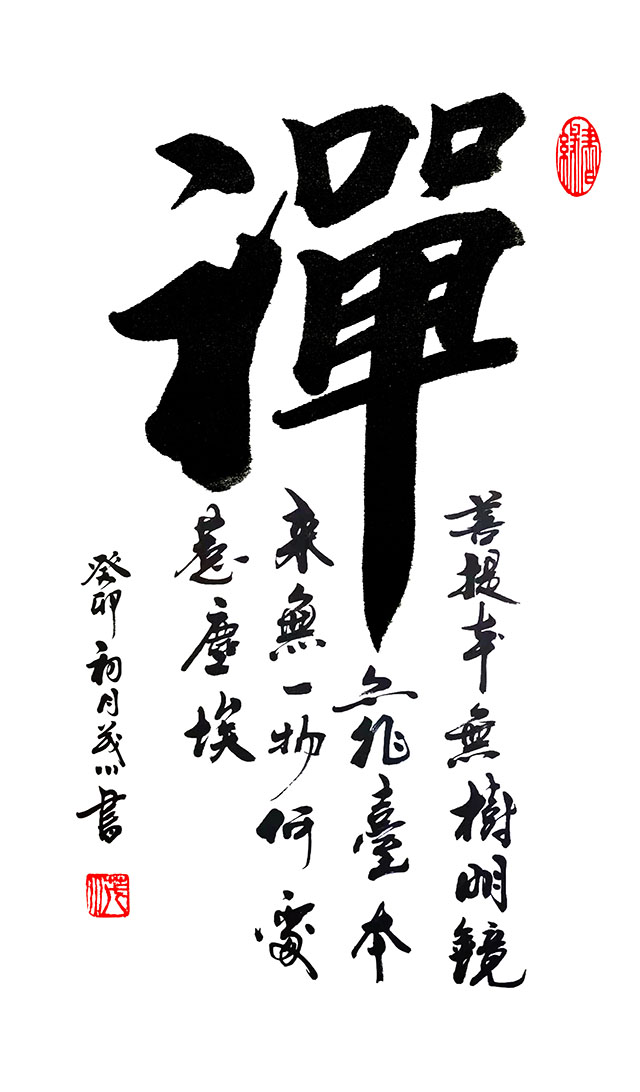 禪
菩提本無樹明鏡
亦非臺本
来無一物何處
惹塵埃
癸卯初月茂川書
茂川